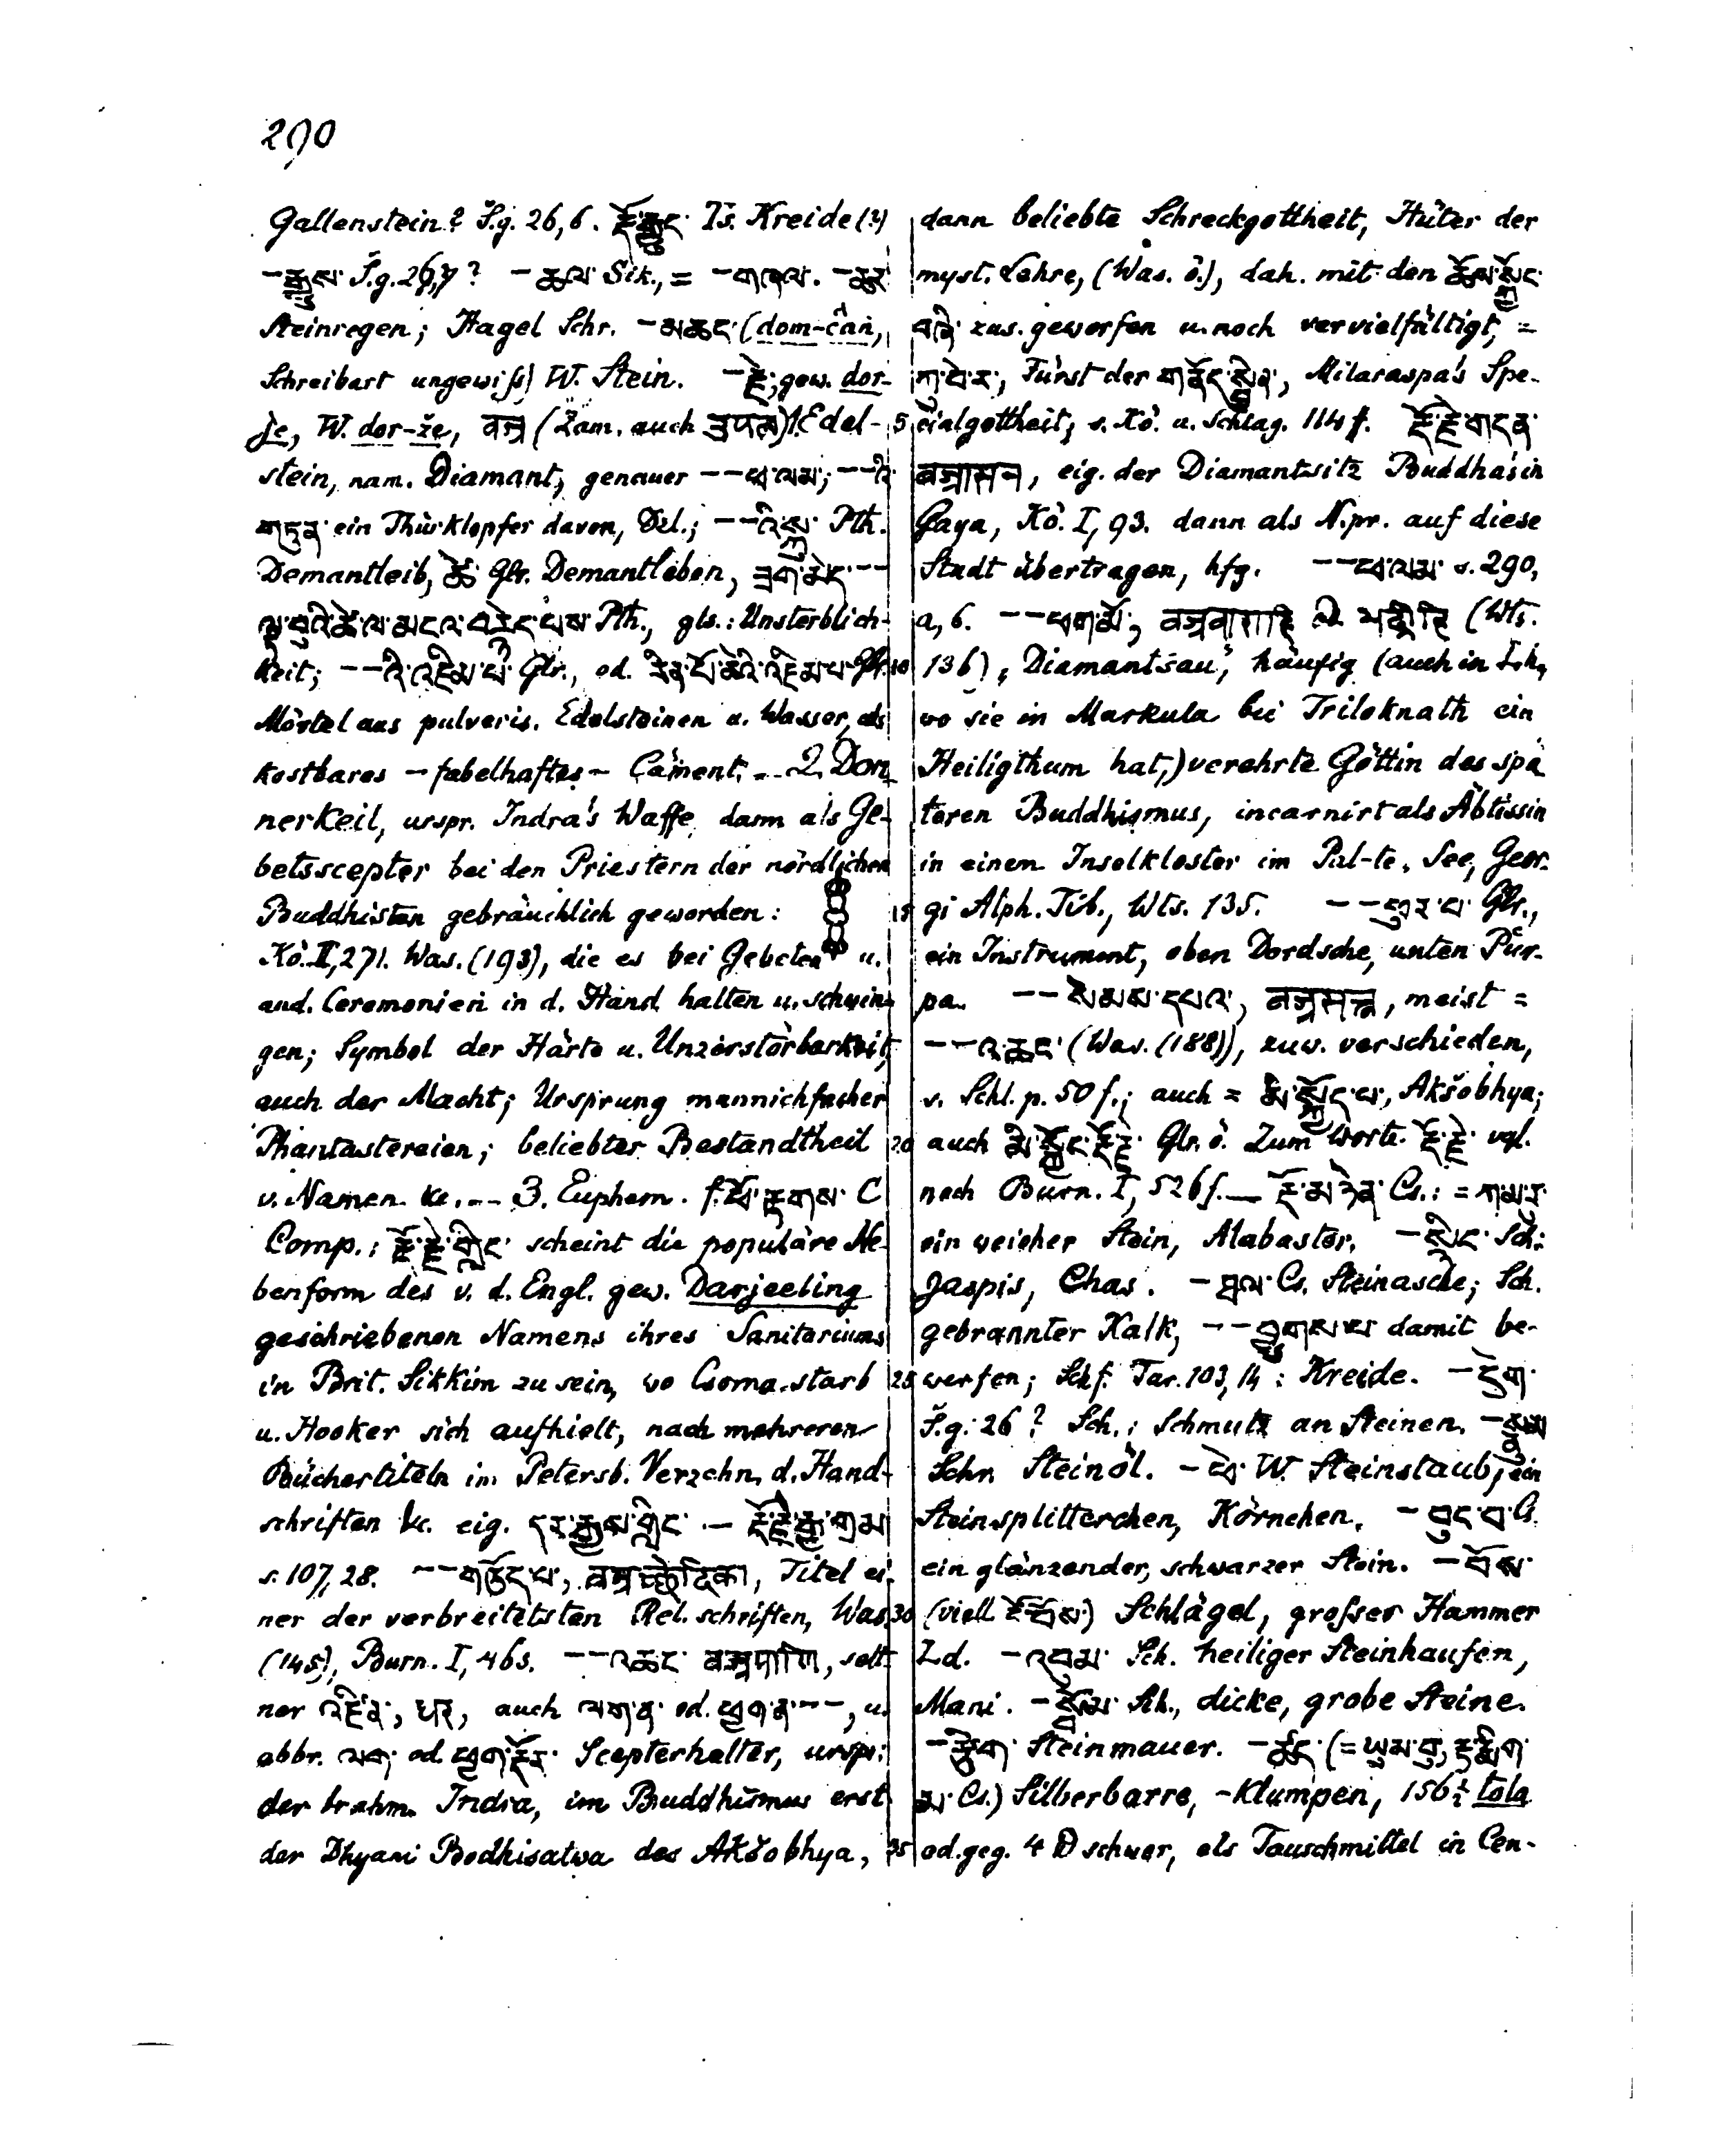 290
Gallenstein? S̆.g. 26,6. རྡོ་རྒྱུད་ Ts. Kreide (?)
-རྒྱུས་ S̆.g. 26,7? -ཆལ་ Sik., = -གཞལ་. -ཆར་
Steinregen; Hagel Schr. -མཆང་ (dom-c̆aṅ,
Schreibart ungewiſs) W. Stein. -རྗེ་, gew. dor-
je, W. dor-z̆e, वज्र (Zam. auch ) 1. Edel-
stein, nam. Diamant, genauer --ཕ་ལམ་; --འི་
གཏུན་ ein Thürklopfer davon, Dzl.; --འི་སྐུ་ Pth.
Demantleib, ཚེ་ Glr. Demantleben, ཟག་མེད་--
ལྟ་བུའི་ཚེ་ལ་མངའ་བརྙེད་པས་ Pth., gls.: Unsterblich-
keit; --འི་འཇིམ་པ་ Glr., od. རིན་པོ་ཆེའི་འཇིམ་པ་ Glr.
Mörtel aus pulveris. Edelsteinen u. Wasser, als
kostbares - fabelhaftes - Cäment. -- 2. Don-
nerkeil, urspr. Indra's Waffe, dann als Ge-
betsscepter bei den Priestern der nördlichen
Buddhisten gebräuchlich geworden:
Kö. II, 271. Was. (193), die es bei Gebeten u.
and. Ceremonien in d. Hand halten u. schwin-
gen; Symbol der Härte u. Unzerstörbarkeit,
auch der Macht; Ursprung mannichfacher
Phantastereien; beliebter Bestandtheil
v. Namen &c. -- 3. Euphem. f. ཕོ་རྟགས་ C
Comp.: རྡོ་རྗེ་གླིང་ scheint die populäre Ne-
benform des v. d. Engl. gew. Darjeeling
geschriebenen Namens ihres Sanitariums
in Brit. Sikkim zu sein, wo Csoma starb
u. Hooker sich aufhielt, nach mehreren
Büchertiteln im Petersb. Verzchn. d. Hand-
schriften &c. eig. དར་རྒྱས་གླིང་ - རྡོ་རྗེ་རྒྱ་གྲམ
s. 107, 28. --གཅོད་པ་, वज्रच्छेदिका, Titel ei-
ner der verbreitetsten Rel. schriften, Was.
(145), Burn. I, 465. --འཆང་ वज्रपाणि, selt-
ner འཛིན་, धर, auch ལག་ན་ od. ཕྱག་ན་--, u.
abbr. ལག་ od. ཕྱག་རྡོར་ Scepterhalter, urspr.
der brahm. Indra, im Buddhismus erst
der Dhyani Bodhisatwa des Aks̆obhya,
dann beliebte Schreckgottheit, Hüter der
myst. Lehre, (Was. ö.), dah. mit den ཆོས་སྐྱོང་
བཞི་ zus. geworfen u. noch vervielfältigt, =
ཀུ་བེ་ར་, Fürst der གནོད་སྦྱིན་, Milaraspa's Spe-
5 cialgottheit, s. Kö. u. Schlag. 114 f. རྡོ་རྗེ་གདན་
वज्रासन, eig. der Diamantsitz Buddha's in
Gaya, Kö. I, 93. dann als N.pr. auf diese
Stadt übertragen, hfg. --ཕ་ལམ་ s. 290,
a, 6. --ཕག་མོ་, वज्रवाराहि (Wts.
10 136), „Diamantsau“, häufig (auch in Lh.,
wo sie in Markula bei Triloknath ein
Heiligthum hat,) verehrte Göttin des spä
teren Buddhismus, incarnirt als Äbtissin
in einem Inselkloster im Pal-te. See, Geor-
15 gi Alph. Tib., Wts. 135. --ཕུར་པ་ Glr.,
ein Instrument, oben Dordsche, unten Pur-
pa. --སེམས་དཔའ་, वज्रसत्त्व, meist =
--འཆང་ (Was. (188)), zuw. verschieden,
s. Schl. p. 50 f.; auch = མི་སྐྱོད་པ་, Aks̆obhya;
20 auch མི་སྐྱོད་རྡོ་རྗེ་ Glr. ö. Zum Worte རྡོ་རྗེ་ vgl.
noch Burn. I, 526 f. — རྡོ་མ་ཉེན་ Cs.: = ཀ་མ་རུ་
ein weicher Stein, Alabaster. -སྲིང་ Sch.:
Jaspis, Chas. -ཐལ་ Cs. Steinasche; Sch.
gebrannter Kalk, --བྱུགས་པས་ damit be-
25 werfen; Schf. Tar. 103, 14: Kreide. -དྲེག་
S̆.g. 26? Sch.: Schmutz an Steinen. -སྣུམ
Schr. Steinöl. -ཕེ་ W. Steinstaub, ein
Steinsplitterchen, Körnchen. -བུང་བ་ Cs.
ein glänzender, schwarzer Stein. -བོས་
30 (viell. རྡོ་བོས་) Schlägel, groſser Hammer
Ld. -འབུམ་ Sch. heiliger Steinhaufen,
Mani. -སྦོམ་ Sch., dicke, grobe Steine.
-རྩིག་ Steinmauer. -ཚད་ (= ཡུམ་བུ, རྟ་རྨིག་
མ་ Cs.) Silberbarre, -Klumpen, 156½ tola
35 od. geg. 4 ℔ schwer, als Tauschmittel in Cen-